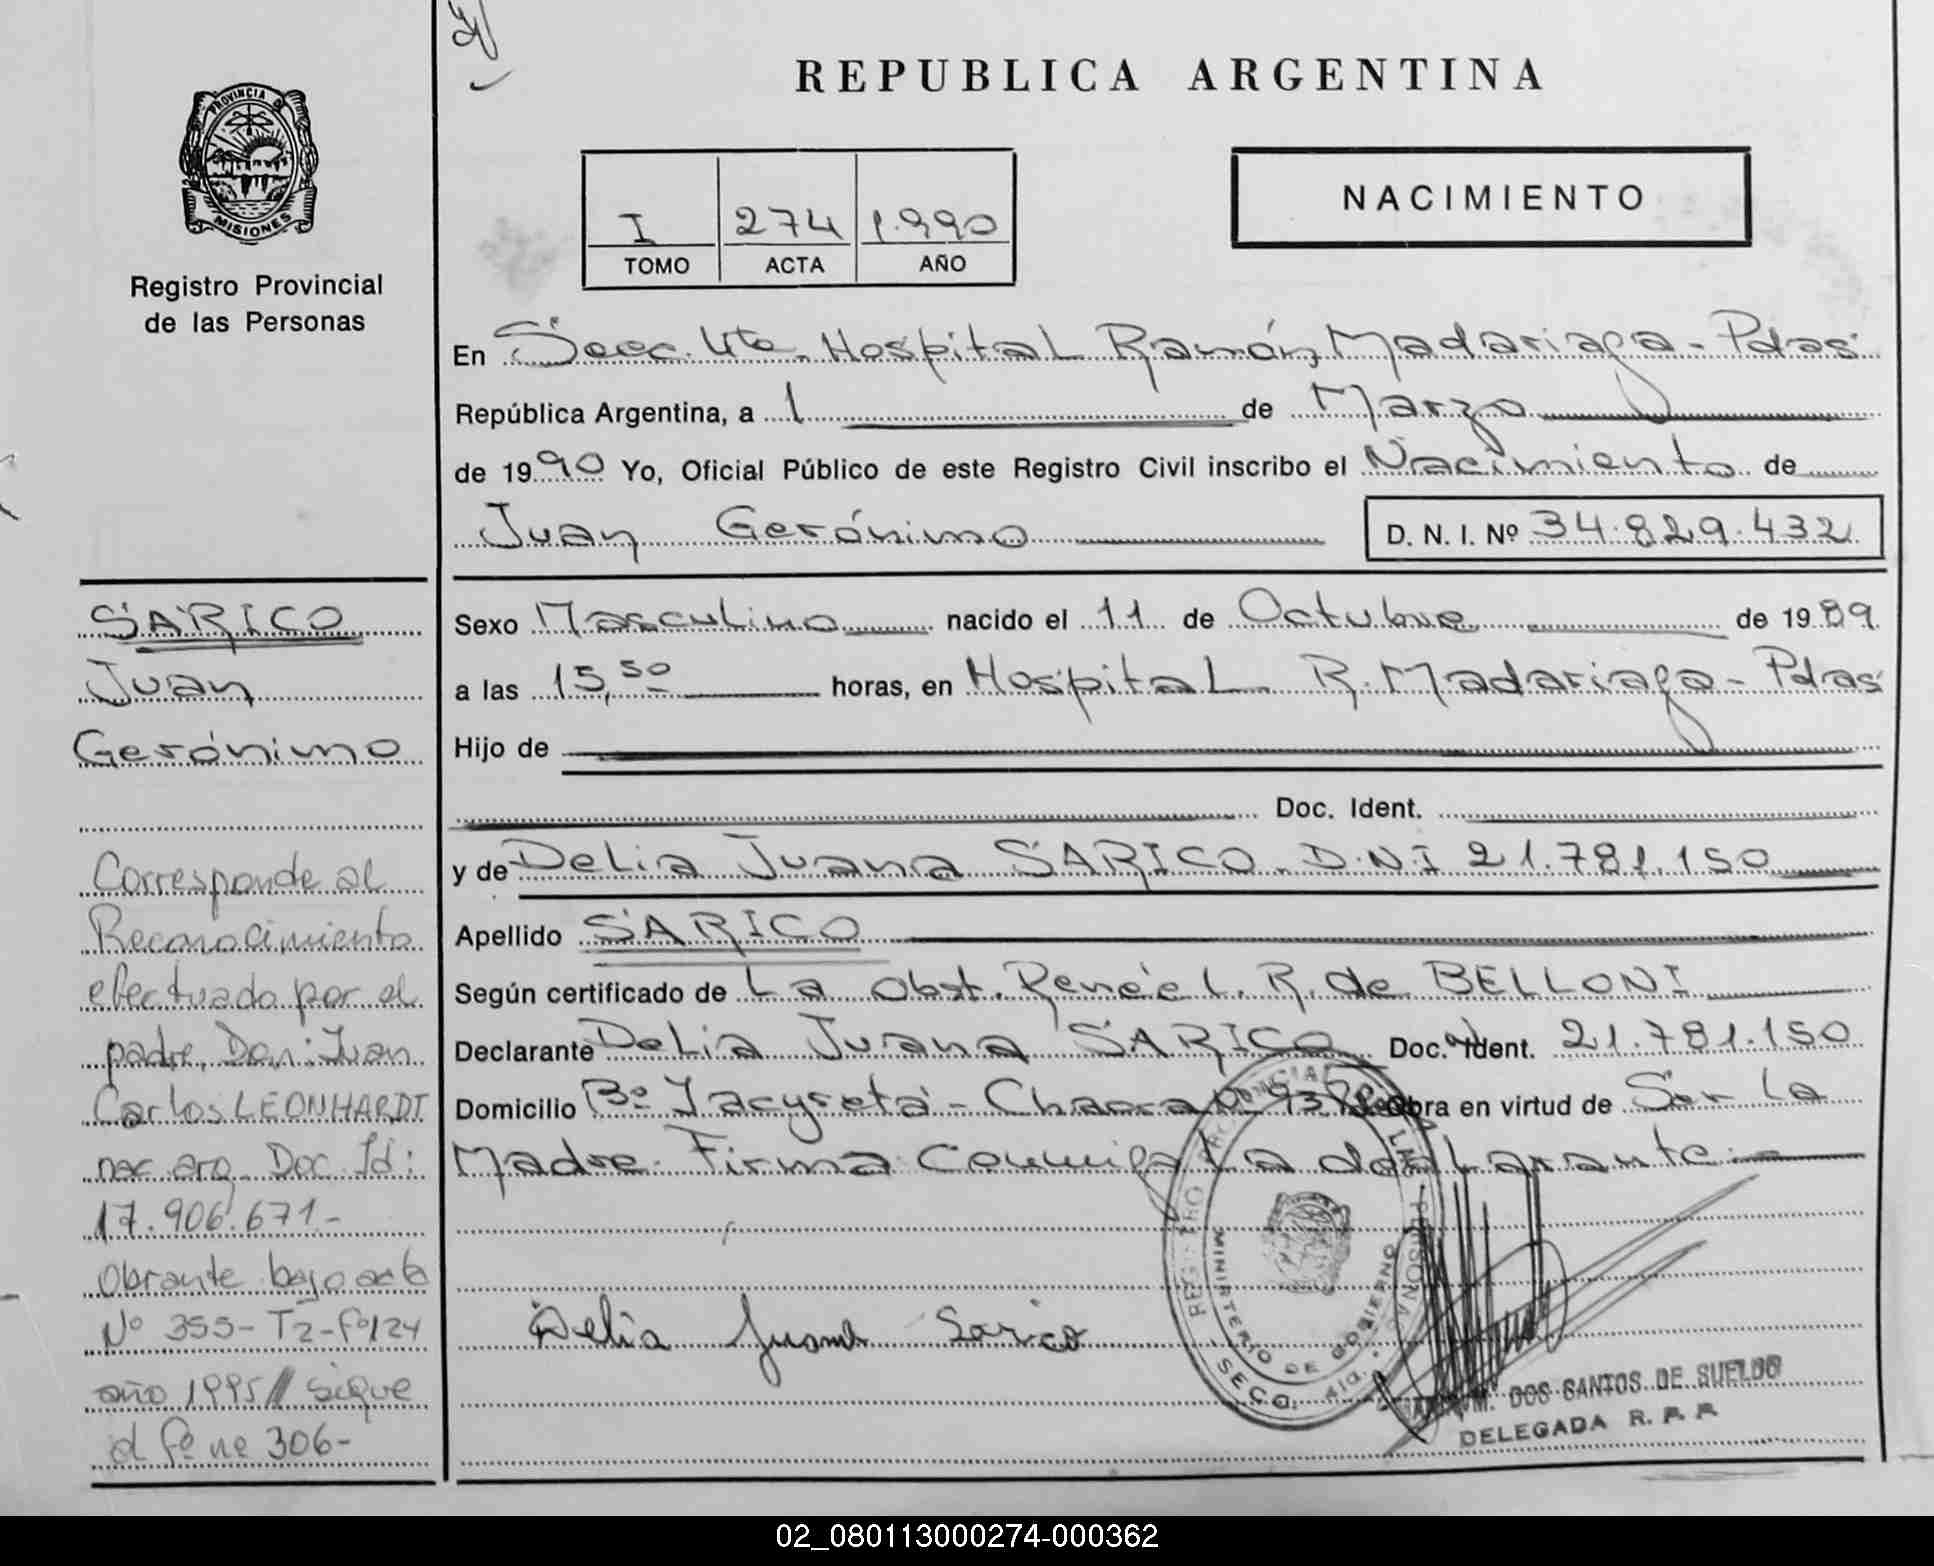 PROVINCIA DE
MISIONES
Registro Provincial
de las Personas
REPUBLICA ARGENTINA
I 274 1.990
TOMO ACTA AÑO
NACIMIENTO
En Secc. 4ta. Hospital Ramón Madariaga - Pdas
República Argentina, a 1 de Marzo
de 1990 Yo, Oficial Público de este Registro Civil inscribo el Nacimiento de
Juan Gerónimo D. N. I. Nº 34.829.432
Sexo Masculino nacido el 11 de Octubre de 1989
a las 15,50 horas, en Hospital R. Madariaga - Pdas
Hijo de
Doc. Ident.
y de Delia Juana SARICO. D.N.I 21.781.150
Apellido SARICO
Según certificado de La Obst. Renée L. R. de BELLONI
Declarante Delia Juana SARICO Doc. Ident. 21.781.150
Domicilio Bº Yacyretá - Chacra Obra en virtud de Ser la
Madre. Firma Conmigo La declarante.
Delia Juana Sarico
REGISTRO PROVINCIAL DE LAS PERSONAS
MINISTERIO DE GOBIERNO
SECC. 4ta.
M. DOS SANTOS DE SUELDO
DELEGADA R. P. P.
SARICO
Juan
Gerónimo
Corresponde al
Reconocimiento
efectuado por el
padre, Don: Juan
Carlos LEONHARDT
nac. arg. Doc. Id:
17.906.671-
Obrante bajo acta
Nº 355- T2- fº124
año 1995// sigue
al fº nº 306-
02_080113000274-000362